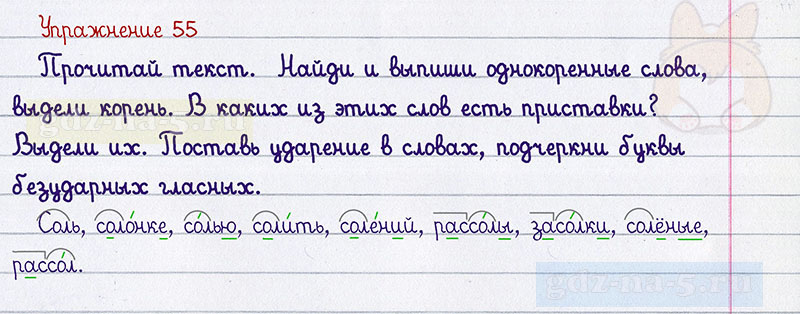 Упражнение 55
Прочитай текст. Найди и выпиши однокоренные слова,
выдели корень. В каких из этих слов есть приставки?
Выдели их. Поставь ударение в словах, подчеркни буквы
безударных гласных.
Соль, соло́нке, со́лью, соли́ть, соле́ний, рассо́лы, засо́лки, солёные,
рассо́л.
gdz-na-5.ru
gdz-na-5.ru